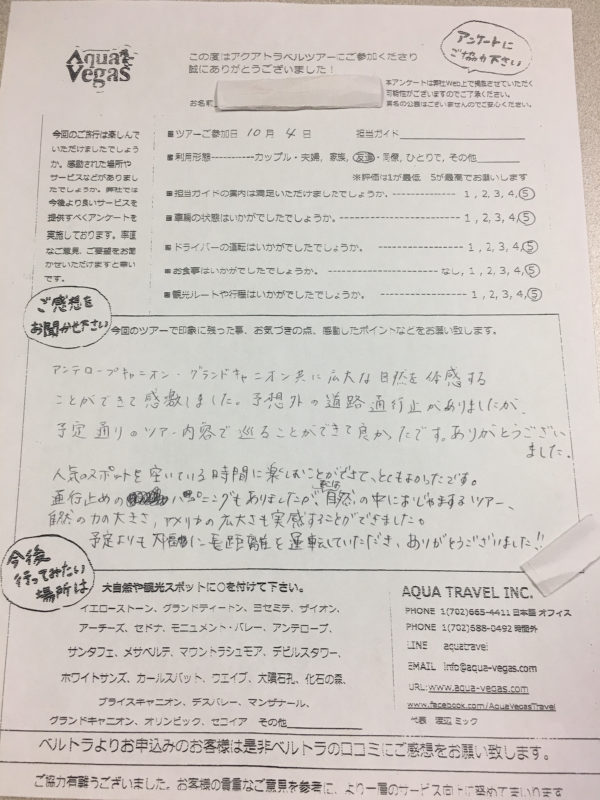 Aqua Vegas
この度はアクアトラベルツアーにご参加くださり
誠にありがとうございました！
アンケートに
ご協力下さい
本アンケートは弊社Web上で掲載させていただく
可能性がございますのでご了承ください。
実名の公表はございませんのでご安心ください。
お名前
今回のご旅行は楽しんで
いただけましたでしょう
か。感動された場所や
サービスなどがありまし
たでしょうか。弊社では
今後より良いサービスを
提供すべくアンケートを
実施しております。率直
なご意見、ご要望をお聞
かせいただけますと幸い
です。
■ツアーご参加日 10月 4日 担当ガイド
■利用形態-----------カップル・夫婦, 家族, 友達・同僚, ひとりで, その他
※評価は1が最低 5が最高でお願いします
■担当ガイドの案内は満足いただけましたでしょうか。------------------ 1, 2, 3, 4, 5
■車輛の状態はいかがでしたでしょうか。------------------ 1, 2, 3, 4, 5
■ドライバーの運転はいかがでしたでしょうか。------------------ 1, 2, 3, 4, 5
■お食事はいかがでしたでしょうか。------------------ なし, 1, 2, 3, 4, 5
■観光ルートや行程はいかがでしたでしょうか。------------------ 1, 2, 3, 4, 5
ご感想を
お聞かせ下さい
今回のツアーで印象に残った事、お気づきの点、感動したポイントなどをお願い致します。
アンテロープキャニオン・グランドキャニオン共に広大な自然を体感する
ことができて感激しました。予想外の道路通行止がありましたが、
予定通りのツアー内容で巡ることができて良かったです。ありがとうござい
ました。
人気のスポットを空いている時間に楽しむことができて、とてもよかったです。
通行止めの ハプニングもありましたが、自然の中におじゃまするツアー、
自然の力の大きさ、アメリカの広大さも実感することができました。
予定よりも 長距離を運転していただき、ありがとうございました!!
今後
行ってみたい
場所は
大自然や観光スポットに○を付けて下さい。
イエローストーン、グランドティートン、ヨセミテ、ザイオン、
アーチーズ、セドナ、モニュメント・バレー、アンテロープ、
サンタフェ、メサベルテ、マウントラシュモア、デビルスタワー、
ホワイトサンズ、カールスバット、ウエイブ、大隕石孔、化石の森、
ブライスキャニオン、デスバレー、マンザナール、
グランドキャニオン、オリンピック、セコイア その他
AQUA TRAVEL INC.
PHONE 1(702)665-4411 日本語 オフィス
PHONE 1(702)688-0492 時間外
LINE aquatravel
EMAIL info@aqua-vegas.com
URL: www.aqua-vegas.com
www.facebook.com/AquaVegasTravel
代表 渡辺 ミック
ベルトラよりお申込みのお客様は是非ベルトラの口コミにご感想をお願い致します。
ご協力有難うございました。お客様の貴重なご意見を参考に、より一層のサービス向上に努めてまいります